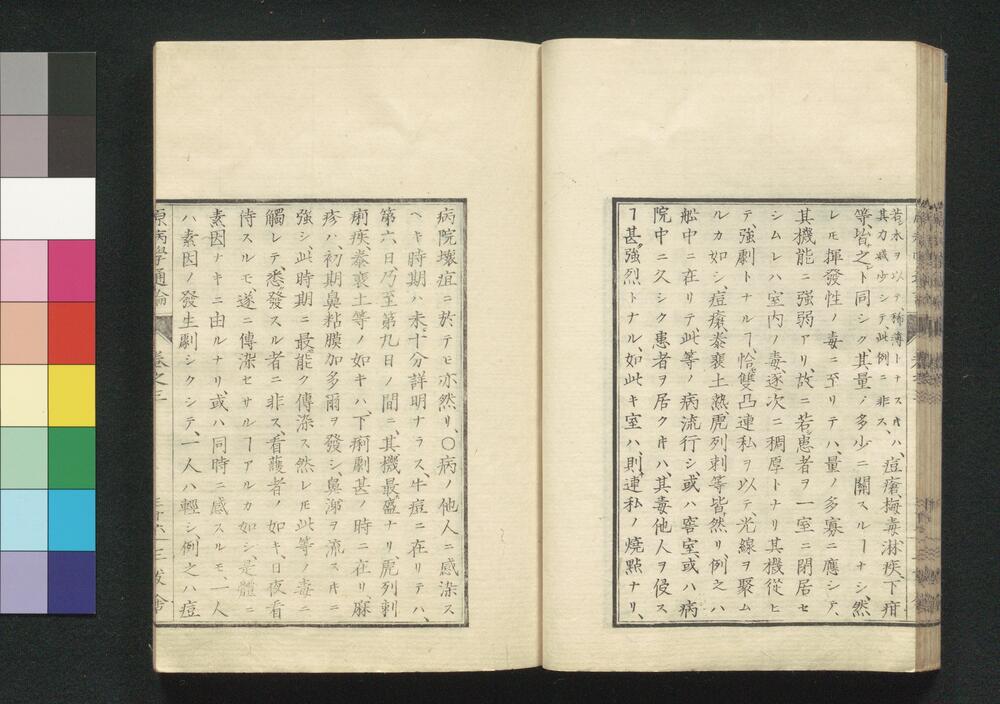 若シ水ヲ以テ稀薄トナスキハ、
其力減少シテ、此例ニ非ス、
痘瘡、梅毒、淋疾、下疳
等、皆之ト同シク其量ノ多少ニ關スルヿナシ、然
レモ揮發性ノ毒ニ至リテハ、量ノ多寡ニ應シテ、
其機能ニ強弱アリ、故ニ若シ患者ヲ一室ニ閉居セ
シムレハ室内ノ毒、逐次ニ稠厚トナリ其機從ヒ
テ、強劇トナルヿ恰モ雙凸連私ヲ以テ、光線ヲ聚ム
ルカ如シ、痘瘡、泰褒土熱、虎列刺等皆然リ、例之ハ
舩中ニ在リテ、此等ノ病流行シ、或ハ窖室、或ハ病
院中ニ久シク患者ヲ居クキハ、其毒他人ヲ侵ス
ヿ甚強烈トナル、如此キ室ハ、則連私ノ燒點ナリ、
病院壞疽ニ於テモ亦然リ、〇病ノ他人ニ感染ス
ヘキ時期ハ未タ十分詳明ナラス、牛痘ニ在リテハ、
第六日、乃至第九日ノ間ニ、其機最盛ナリ、虎列刺
痢疾、泰褒土等ノ如キハ、下痢劇甚ノ時ニ在リ、麻
疹ハ、初期鼻粘膜加多爾ヲ發シ、鼻涕ヲ流スキニ
強シ、此時期ニ最能ク傳染ス然レモ此等ノ毒ニ
觸レテ、悉ク發スル者ニ非ス、看護者ノ如キ、日夜看
侍スルモ、遂ニ傳染セサルヿアルカ如シ、是體ニ
素因ナキニ由ルナリ、或ハ同時ニ感スルモ、一人
ハ素因ノ發生劇シクシテ、一人ハ輕シ、例之ハ痘
原病學通論 卷之三